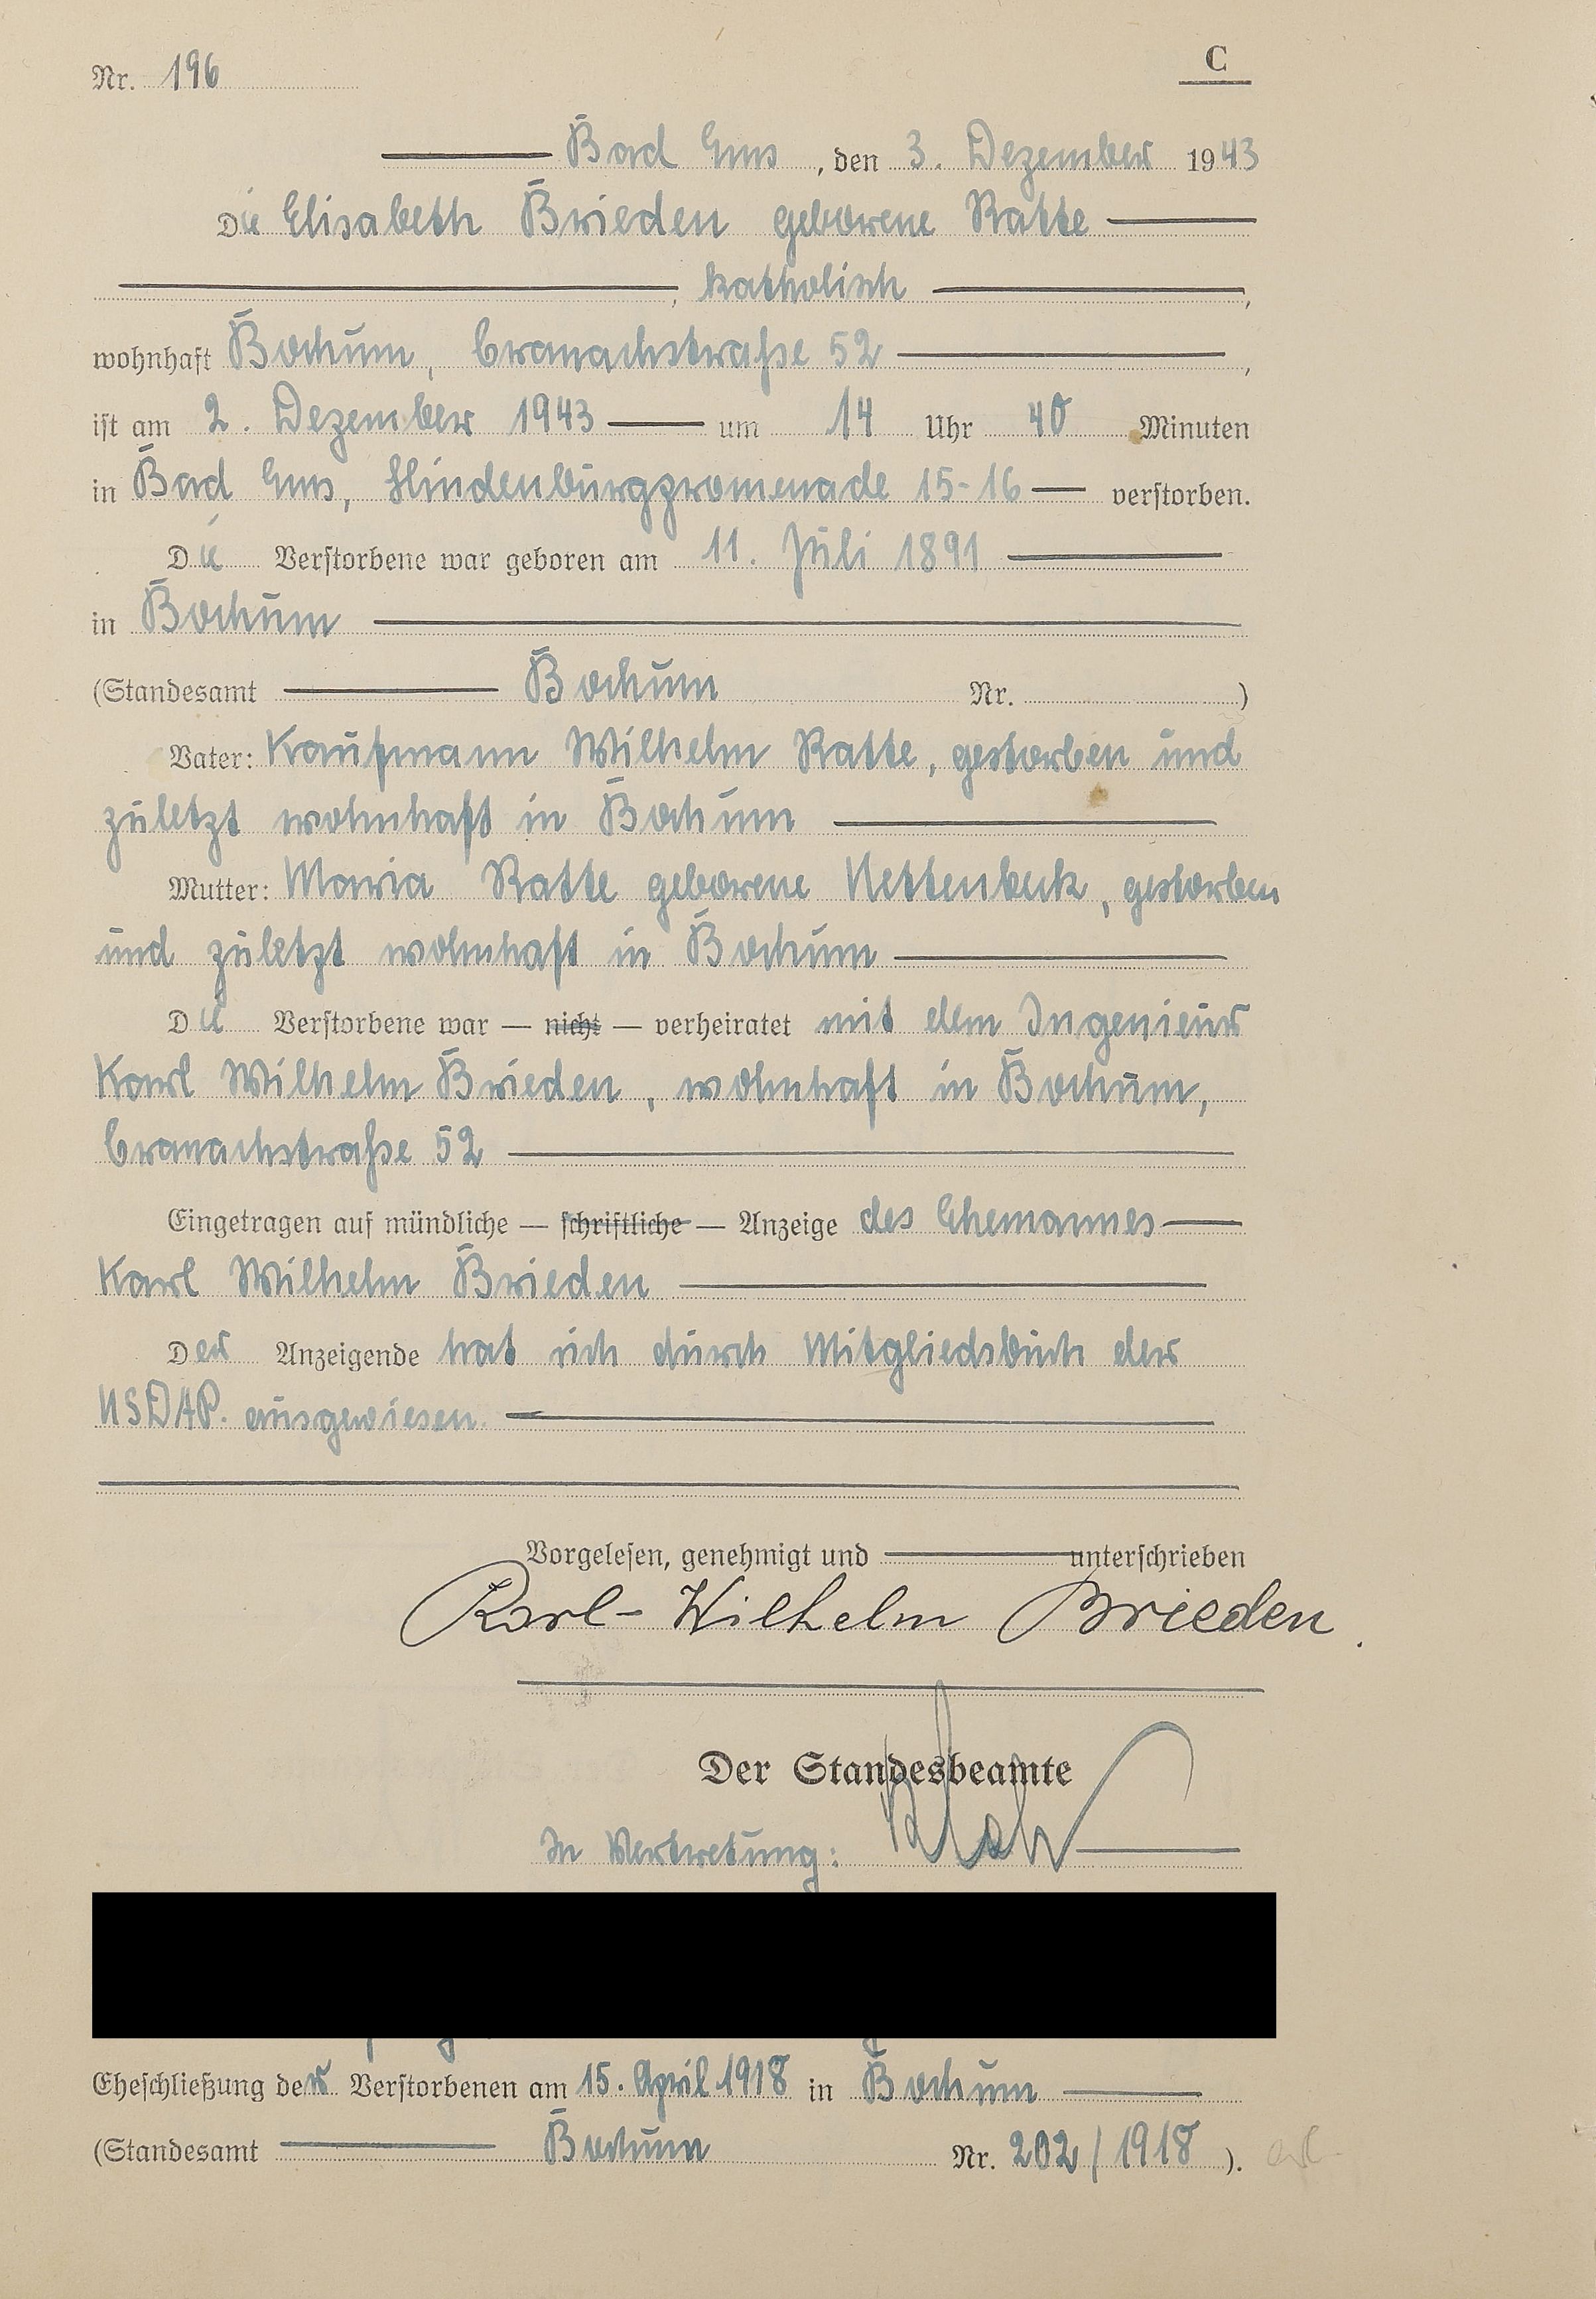 Nr. 196
C
Bad Ems, den 3. Dezember 1943
Die Elisabeth Brieden geborene Ratte
, katholisch ,
wohnhaft Bochum, Cranachstraße 52 ,
ist am 2. Dezember 1943 um 14 Uhr 40 Minuten
in Bad Ems, Hindenburgpromenade 15-16 verstorben.
Die Verstorbene war geboren am 11. Juli 1891
in Bochum
(Standesamt Bochum Nr. )
Vater: Kaufmann Wilhelm Ratte, gestorben und
zuletzt wohnhaft in Bochum
Mutter: Maria Ratte geborene Nettenbeck, gestorben
und zuletzt wohnhaft in Bochum
Die Verstorbene war — nicht — verheiratet mit dem Ingenieur
Karl Wilhelm Brieden, wohnhaft in Bochum,
Cranachstraße 52
Eingetragen auf mündliche — schriftliche — Anzeige des Ehemannes
Karl Wilhelm Brieden
Der Anzeigende hat sich durch Mitgliedsbuch der
NSDAP. ausgewiesen.
Vorgelesen, genehmigt und unterschrieben
Karl-Wilhelm Brieden.
Der Standesbeamte
In Vertretung:
Eheschließung der Verstorbenen am 15. April 1918 in Bochum
(Standesamt Bochum Nr. 202/1918 ).